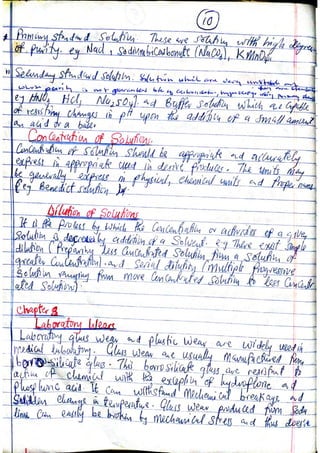 10
Primary Standard Solution: These are solution with high degree
of purity. eg Nacl, Sodium bicarbonate (NaCO3), KMnO4
Secondary Standard Solution: Solution which are very
whose purity is not guaranteed
eg HNO3, HCl, Na2SO4) and Buffer solution which are capable
of resisting changes in pH upon the addition of a small amount
an acid to a base.
Concentration of Solutions
Concentration of solution should be appropriate and accurately
express in appropriate used in desire produces. The units may
be generally express in physical, chemical units and Proper name
eg Benedict solution
Dilution of Solutions
It is the process by which the concentration or activities of a given
solution is decrease by addition of a Solvent. eg There exist simple
dilution (Preparing less concentrated Solution from a Solution of
greater concentration) and serial dilution (multiple Progressive
Solution ranging from more concentrated solution to less concentr
ated solution).
Chapter 3
Laboratory Wears
Laboratory glass wear and plastic wear are widely used in
medical laboratory. Glass wear are usually manufactured from
borosilicate glass. This borosilicate glass are resistant to
action of chemical with the exception of hydrofloric and
phosphoric acid. It can withstand mechanical breakage and
sudden change in temperature. Glass wear produced from Soda
lime can easily be broken by mechanical stress and thus